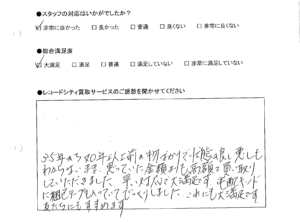 ●スタッフの対応はいかがでしたか？
☑非常に良かった □良かった □普通 □良くない □非常に良くない
●総合満足度
☑大満足 □満足 □普通 □満足していない □非常に満足していない
●レコードシティ買取サービスのご感想を聞かせてください
35年から40年以上前の物ばかりで状態の良し悪しも
わからないまま、思っていた金額よりも高額で買い取り
していただきました。早い対応で大満足です。宅配キットに
軍手も入っていてびっくりしました。これにも大満足です
友だちにもすすめます